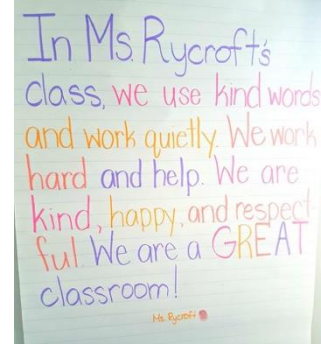 In Ms. Rycroft's
class, we use kind words
and work quietly. We work
hard and help. We are
kind, happy, and respect
ful. We are a GREAT
classroom!
Ms. Rycroft